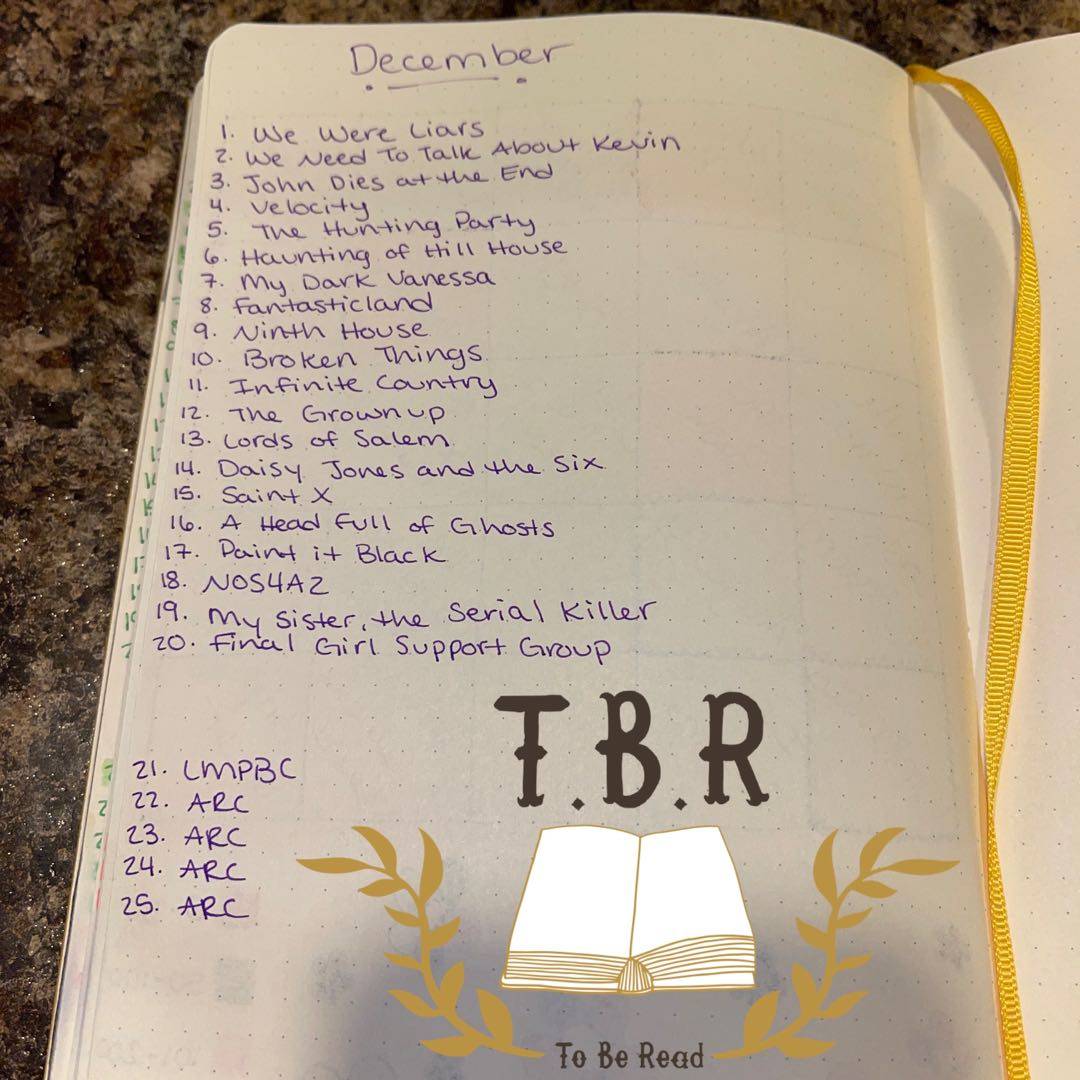 December
1. We Were Liars
2. We Need To Talk About Kevin
3. John Dies at the End
4. Velocity
5. The Hunting Party
6. Haunting of Hill House
7. My Dark Vanessa
8. Fantasticland
9. Ninth House
10. Broken Things
11. Infinite Country
12. The Grownup
13. Lords of Salem
14. Daisy Jones and the Six
15. Saint X
16. A Head Full of Ghosts
17. Paint it Black
18. NOS4A2
19. My Sister, the Serial Killer
20. Final Girl Support Group
21. LMPBC
22. ARC
23. ARC
24. ARC
25. ARC
T.B.R
To Be Read